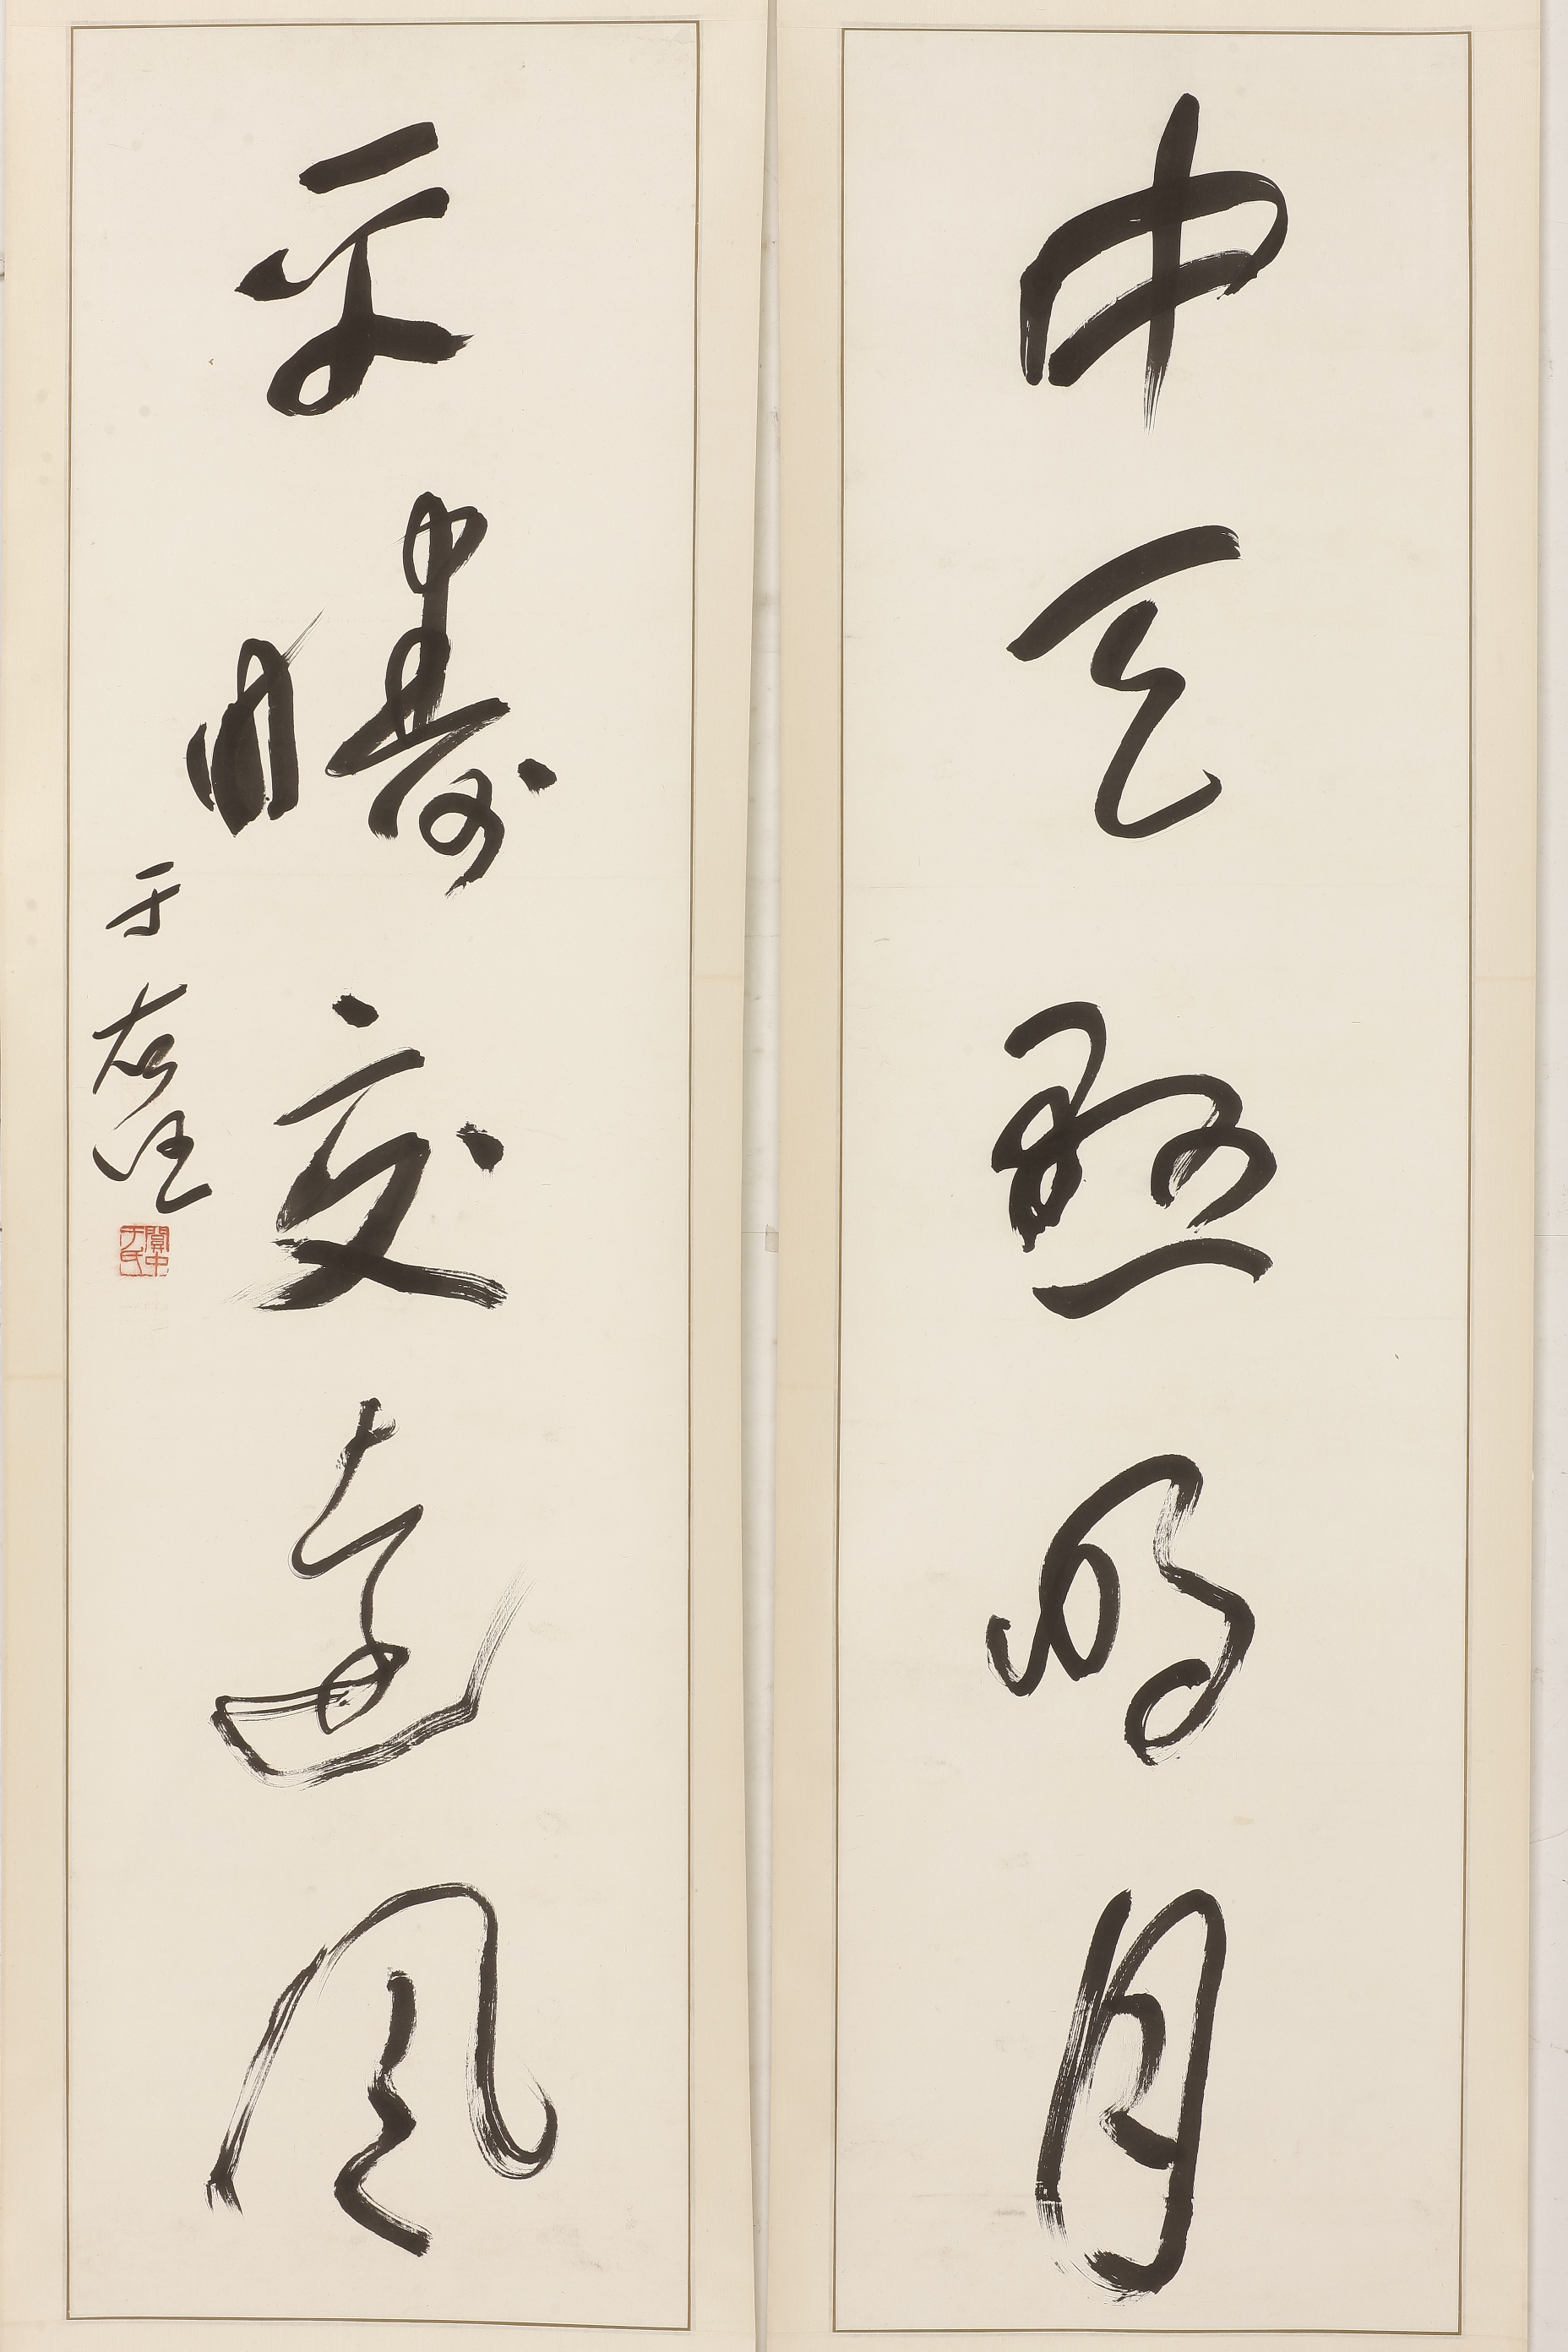 中天懸明月
平疇交遠風
于右任
關中于氏